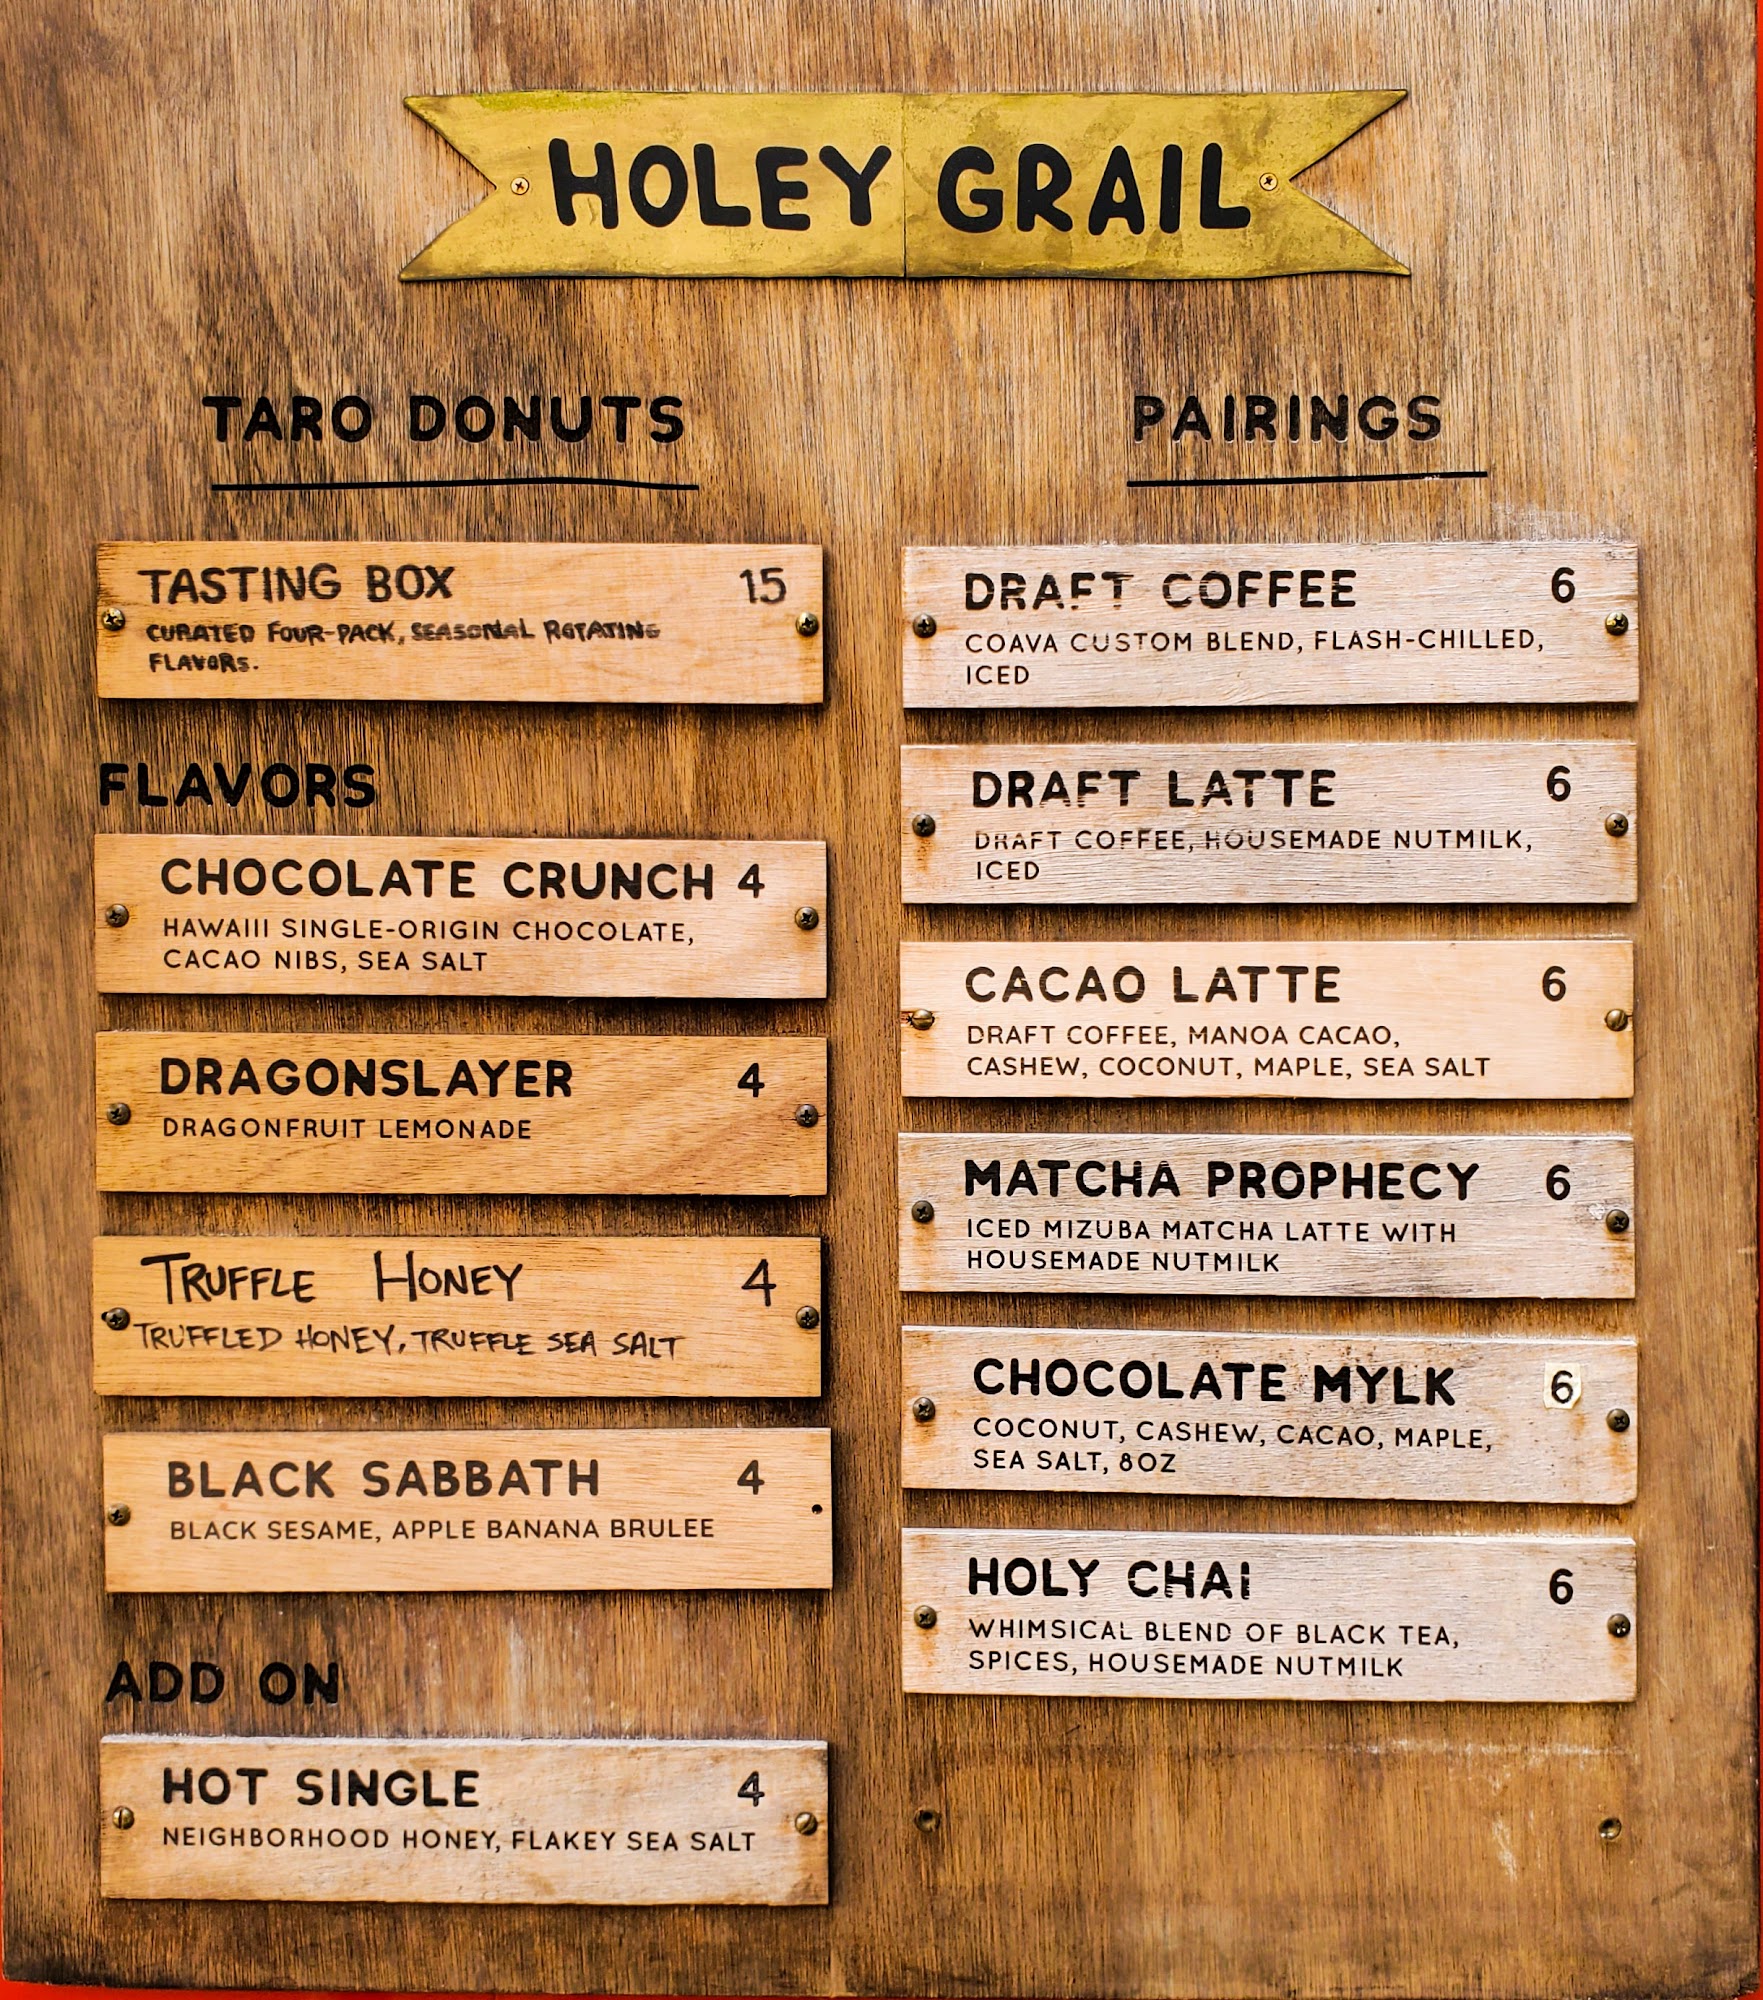 HOLEY GRAIL
TARO DONUTS
TASTING BOX 15
CURATED FOUR-PACK, SEASONAL ROTATING
FLAVORS.
FLAVORS
CHOCOLATE CRUNCH 4
HAWAIII SINGLE-ORIGIN CHOCOLATE,
CACAO NIBS, SEA SALT
DRAGONSLAYER 4
DRAGONFRUIT LEMONADE
TRUFFLE HONEY 4
TRUFFLED HONEY, TRUFFLE SEA SALT
BLACK SABBATH 4
BLACK SESAME, APPLE BANANA BRULEE
ADD ON
HOT SINGLE 4
NEIGHBORHOOD HONEY, FLAKEY SEA SALT
PAIRINGS
DRAFT COFFEE 6
COAVA CUSTOM BLEND, FLASH-CHILLED,
ICED
DRAFT LATTE 6
DRAFT COFFEE, HOUSEMADE NUTMILK,
ICED
CACAO LATTE 6
DRAFT COFFEE, MANOA CACAO,
CASHEW, COCONUT, MAPLE, SEA SALT
MATCHA PROPHECY 6
ICED MIZUBA MATCHA LATTE WITH
HOUSEMADE NUTMILK
CHOCOLATE MYLK 6
COCONUT, CASHEW, CACAO, MAPLE,
SEA SALT, 8OZ
HOLY CHAI 6
WHIMSICAL BLEND OF BLACK TEA,
SPICES, HOUSEMADE NUTMILK